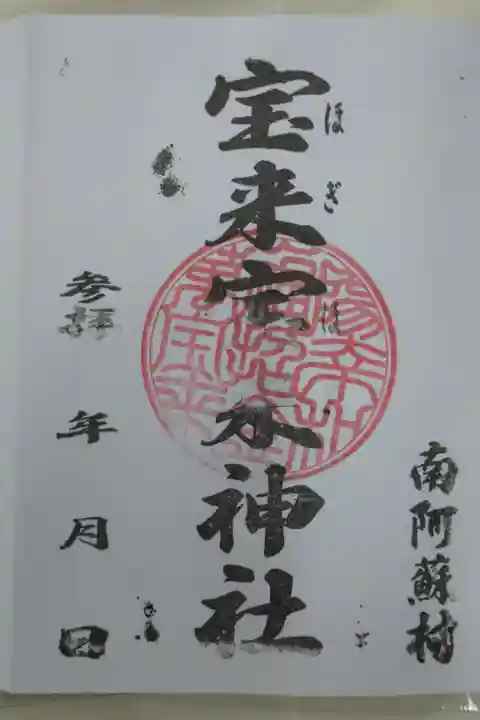 南阿蘇村
宝来宝来神社
ほぎ ほ
参拝 年 月 日